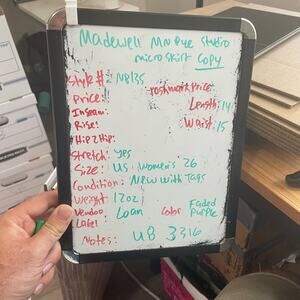 Madewell MN Dye Studio
micro skirt Copy
Style #: NB135
Poshmark Price:
Price:
Length: 14
Inseam:
Waist: 15
Rise:
Hip 2 Hip:
Stretch: yes
Size: US Women's 26
Condition: New with Tags
Weight 12oz
Vendor: Loan Color Faded Purple
Label
Notes: U8 3316